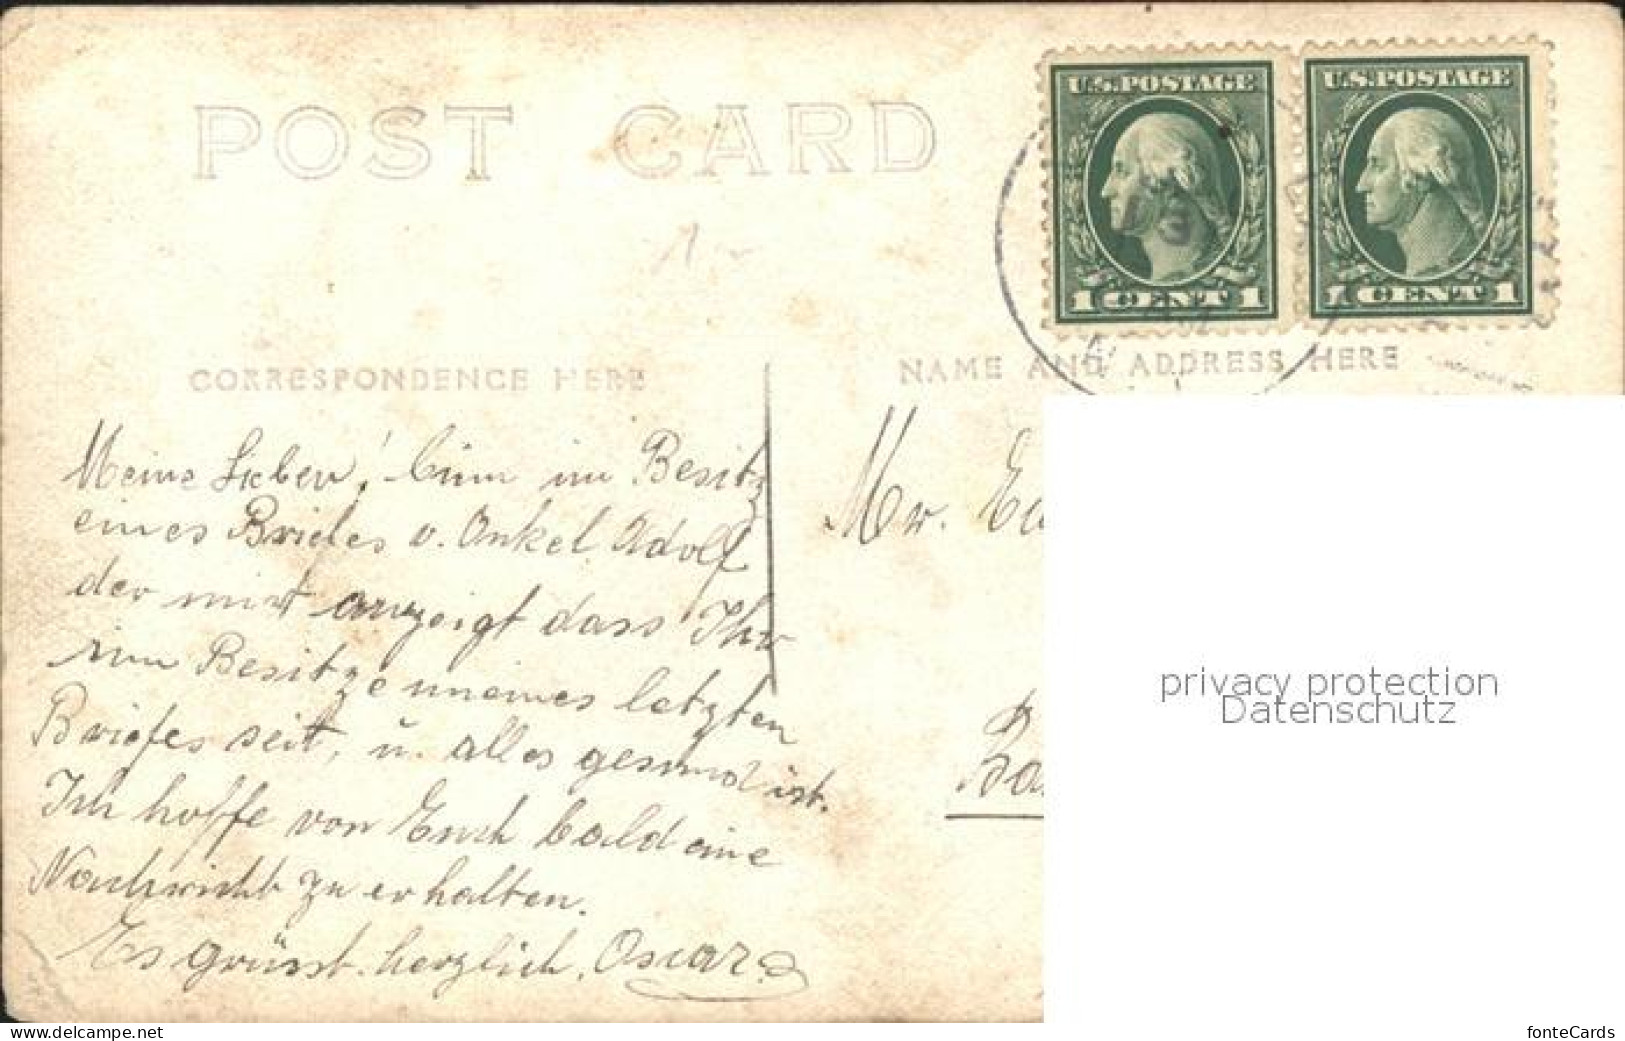 POST CARD
U.S. POSTAGE
1 CENT 1
U.S. POSTAGE
1 CENT 1
CORRESPONDENCE HERE
NAME AND ADDRESS HERE
Meine Lieben! binn im Besitz
eines Briefes v. Onkel Adolf
der mir anzeigt dass Ihr
im Besitze meines letzten
Briefes seit, u. alles gesund ist.
Ich hoffe von Euch bald eine
Nachricht zu erhalten.
Es grüsst herzlich, Oscar
Mr.
privacy protection
Datenschutz
www.delcampe.net
fonteCards